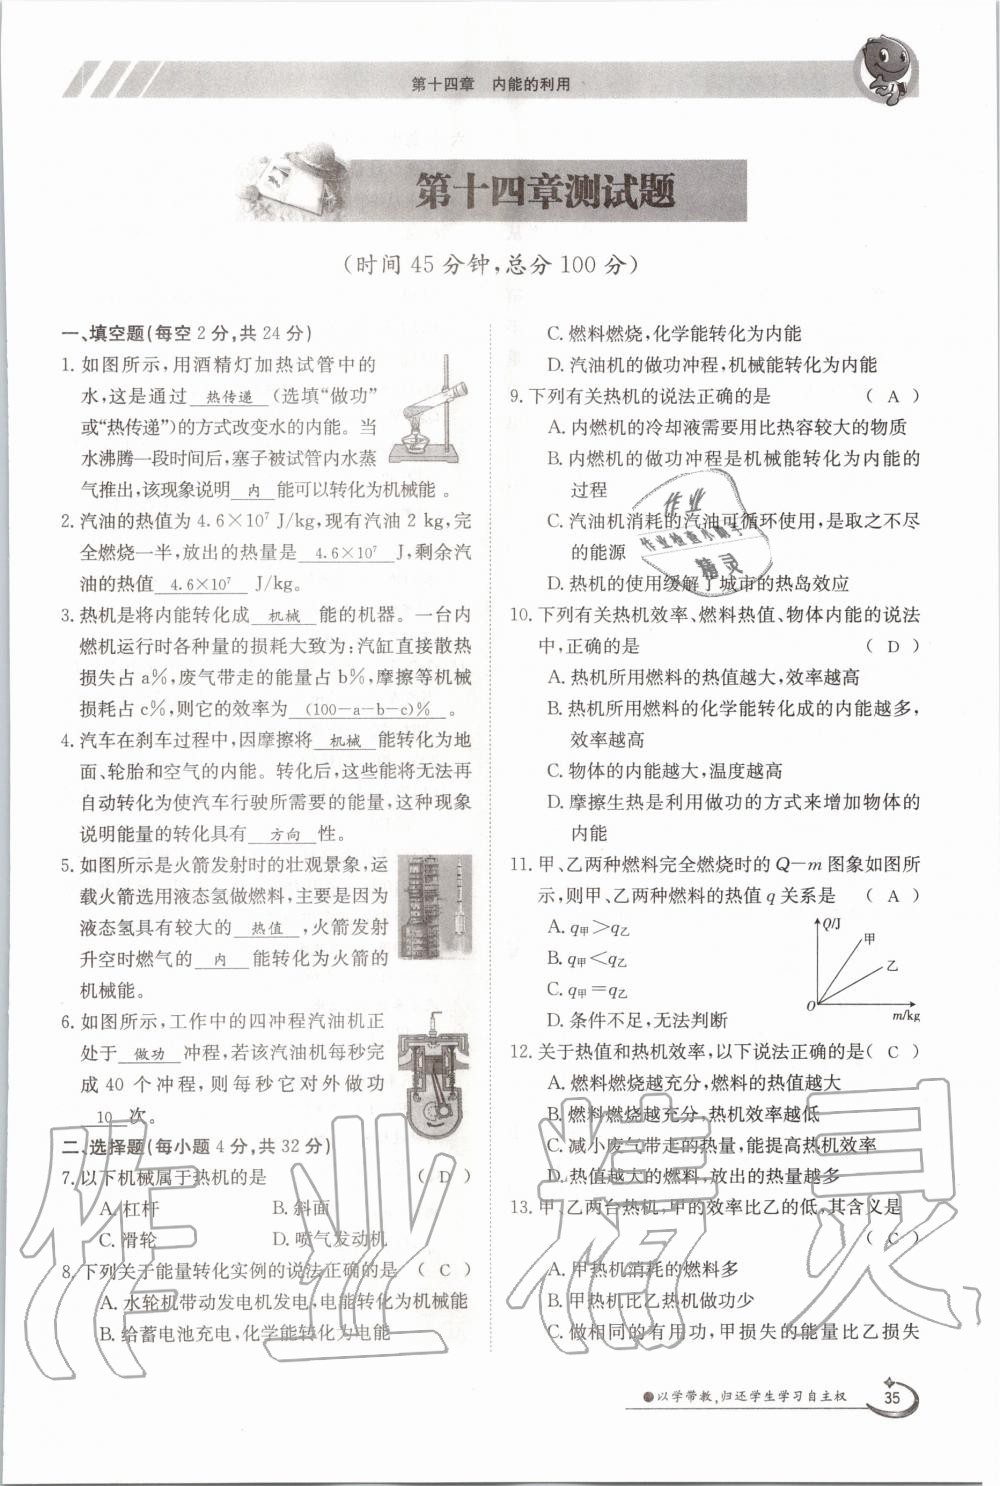 第十四章　内能的利用
第十四章测试题
(时间 45 分钟,总分 100 分)
一、填空题(每空 2 分,共 24 分)
1. 如图所示,用酒精灯加热试管中的
水,这是通过 热传递 (选填“做功”
或“热传递”)的方式改变水的内能。当
水沸腾一段时间后,塞子被试管内水蒸
气推出,该现象说明 内 能可以转化为机械能 。
2. 汽油的热值为 4.6×10⁷ J/kg,现有汽油 2 kg,完
全燃烧一半,放出的热量是 4.6×10⁷ J,剩余汽
油的热值 4.6×10⁷ J/kg。
3. 热机是将内能转化成 机械 能的机器。一台内
燃机运行时各种量的损耗大致为:汽缸直接散热
损失占 a%,废气带走的能量占 b%,摩擦等机械
损耗占 c%,则它的效率为 (100-a-b-c)% 。
4. 汽车在刹车过程中,因摩擦将 机械 能转化为地
面、轮胎和空气的内能。转化后,这些能将无法再
自动转化为使汽车行驶所需要的能量,这种现象
说明能量的转化具有 方向 性。
5. 如图所示是火箭发射时的壮观景象,运
载火箭选用液态氢做燃料,主要是因为
液态氢具有较大的 热值 ,火箭发射
升空时燃气的 内 能转化为火箭的
机械能。
6. 如图所示,工作中的四冲程汽油机正
处于 做功 冲程,若该汽油机每秒完
成 40 个冲程,则每秒它对外做功
10 次。
二、选择题(每小题 4 分,共 32 分)
7. 以下机械属于热机的是 ( D )
A. 杠杆 B. 斜面
C. 滑轮 D. 喷气发动机
8. 下列关于能量转化实例的说法正确的是 ( C )
A. 水轮机带动发电机发电,电能转化为机械能
B. 给蓄电池充电,化学能转化为电能
C. 燃料燃烧,化学能转化为内能
D. 汽油机的做功冲程,机械能转化为内能
9. 下列有关热机的说法正确的是 ( A )
A. 内燃机的冷却液需要用比热容较大的物质
B. 内燃机的做功冲程是机械能转化为内能的
过程
C. 汽油机消耗的汽油可循环使用,是取之不尽
的能源
D. 热机的使用缓解了城市的热岛效应
10. 下列有关热机效率、燃料热值、物体内能的说法
中,正确的是 ( D )
A. 热机所用燃料的热值越大,效率越高
B. 热机所用燃料的化学能转化成的内能越多,
效率越高
C. 物体的内能越大,温度越高
D. 摩擦生热是利用做功的方式来增加物体的
内能
11. 甲、乙两种燃料完全燃烧时的 Q-m 图象如图所
示,则甲、乙两种燃料的热值 q 关系是 ( A )
A. q甲>q乙
B. q甲<q乙
C. q甲=q乙
D. 条件不足,无法判断
Q/J
甲
乙
O
m/kg
12. 关于热值和热机效率,以下说法正确的是( C )
A. 燃料燃烧越充分,燃料的热值越大
B. 燃料燃烧越充分,热机效率越低
C. 减小废气带走的热量,能提高热机效率
D. 热值越大的燃料,放出的热量越多
13. 甲、乙两台热机,甲的效率比乙的低,其含义是
( C )
A. 甲热机消耗的燃料多
B. 甲热机比乙热机做功少
C. 做相同的有用功,甲损失的能量比乙损失
●以学带教,归还学生学习自主权
35
作业
作业检查小帮手
精灵
作业精灵